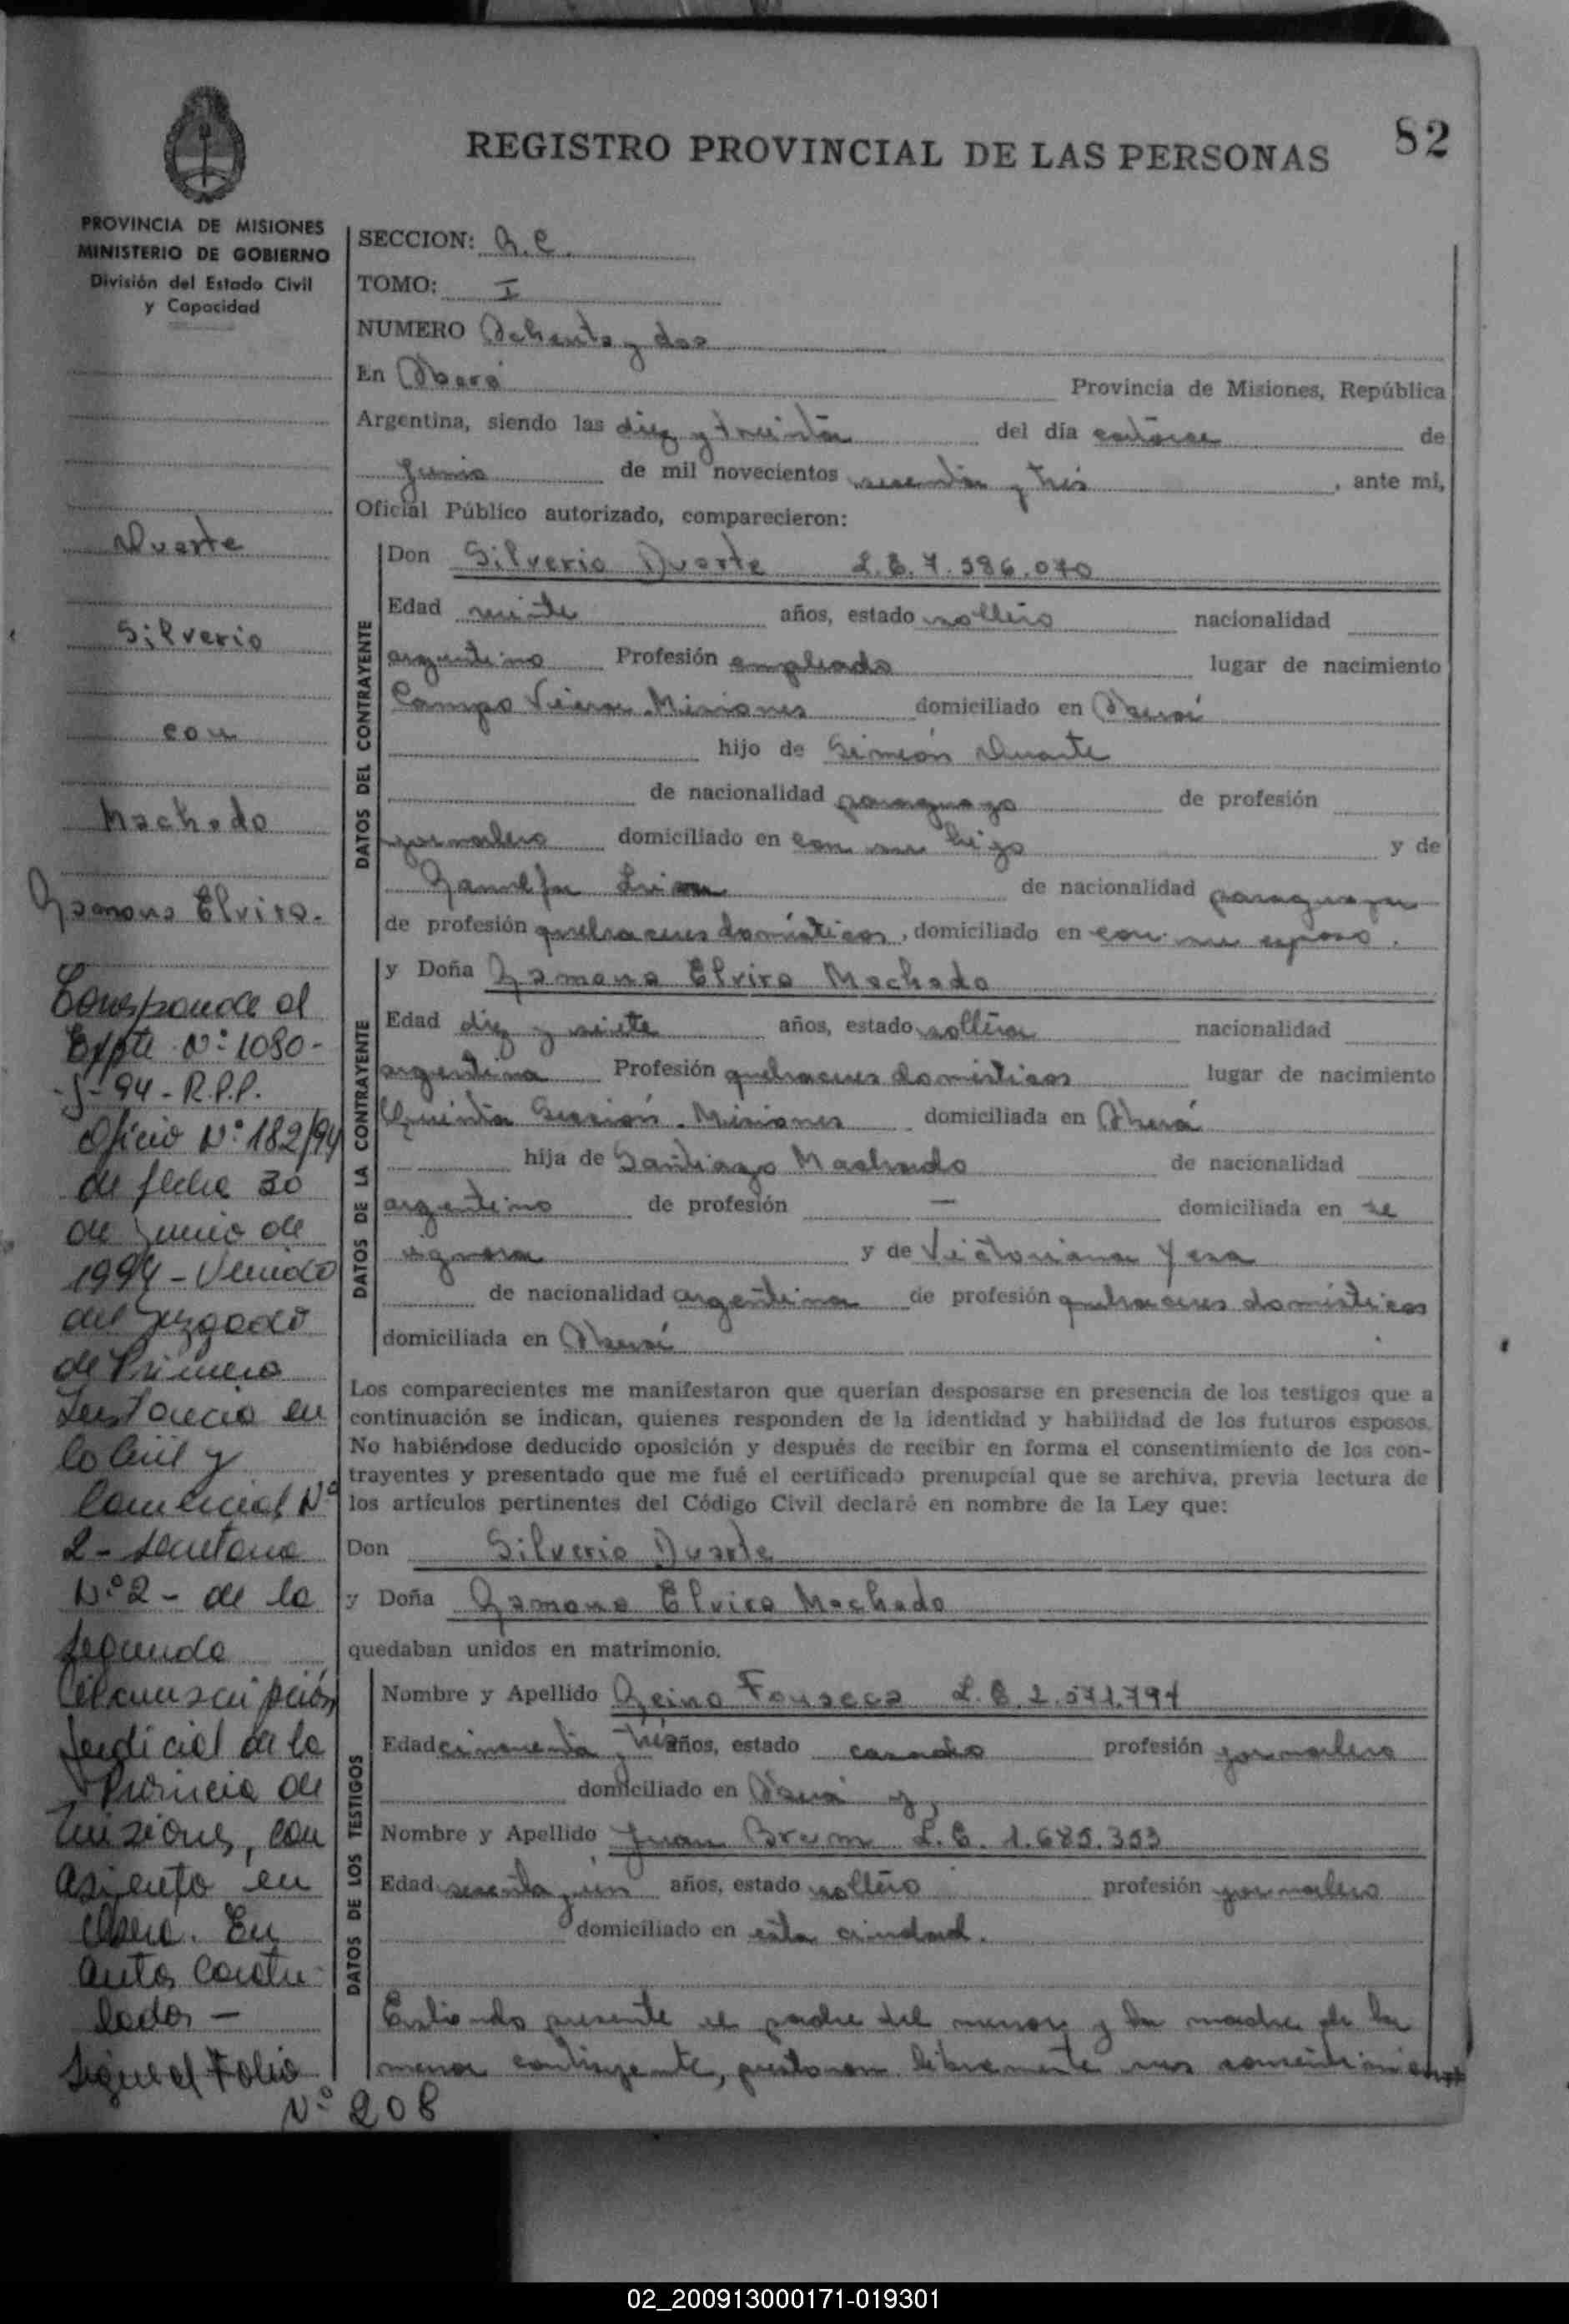 REGISTRO PROVINCIAL DE LAS PERSONAS
82
PROVINCIA DE MISIONES
MINISTERIO DE GOBIERNO
División del Estado Civil
y Capacidad
Duarte
Silverio
con
Machado
Ramona Elvira.
Corresponde al
Expte N° 1080-
-J-94-R.P.P.
Oficio N° 182/94
de fecha 30
de Junio de
1994 - Venido
del Juzgado
de Primera
Instancia en
lo Civil y
Comercial N°
2 - Secretaria
N° 2 - de la
Segunda
Circunscripción
Judicial de la
Provincia de
Misiones, con
asiento en
Oberá. En
autos Caratu-
lados -
Sigue al Folio
N° 208
SECCION: R.C.
TOMO: I
NUMERO Ochenta y dos
En Oberá Provincia de Misiones, República
Argentina, siendo las diez y treinta del día catorce de
Junio de mil novecientos sesenta y tres, ante mí,
Oficial Público autorizado, comparecieron:
DATOS DEL CONTRAYENTE
Don Silverio Duarte L.E. 7.586.070
Edad veinte años, estado soltero nacionalidad
argentino Profesión empleado lugar de nacimiento
Campo Viera Misiones domiciliado en Oberá
hijo de Simeón Duarte
de nacionalidad paraguayo de profesión
jornalero domiciliado en con su hijo y de
de nacionalidad paraguaya
de profesión quehaceres domésticos, domiciliado en con su esposo.
DATOS DE LA CONTRAYENTE
y Doña Ramona Elvira Machado
Edad diez y siete años, estado soltera nacionalidad
argentina Profesión quehaceres domésticos lugar de nacimiento
Quinta Sección. Misiones domiciliada en Oberá
hija de Santiago Machado de nacionalidad
argentino de profesión — domiciliada en se
ignora y de Victoriana Yesa
de nacionalidad argentina de profesión quehaceres domésticos
domiciliada en Oberá
Los comparecientes me manifestaron que querían desposarse en presencia de los testigos que a
continuación se indican, quienes responden de la identidad y habilidad de los futuros esposos.
No habiéndose deducido oposición y después de recibir en forma el consentimiento de los con-
trayentes y presentado que me fué el certificado prenupcial que se archiva, previa lectura de
los artículos pertinentes del Código Civil declaré en nombre de la Ley que:
Don Silverio Duarte
y Doña Ramona Elvira Machado
quedaban unidos en matrimonio.
DATOS DE LOS TESTIGOS
Nombre y Apellido Reino Fonseca L.E. 2.571.791
Edad cincuenta y tres años, estado casado profesión jornalero
domiciliado en Oberá y,
Nombre y Apellido Juan Brem L.E. 1.685.353
Edad sesenta y un años, estado soltero profesión jornalero
domiciliado en esta ciudad.
Estando presente el padre del menor y la madre de la
menor contrayente, prestaron libremente sus consentimiento
02_200913000171-019301